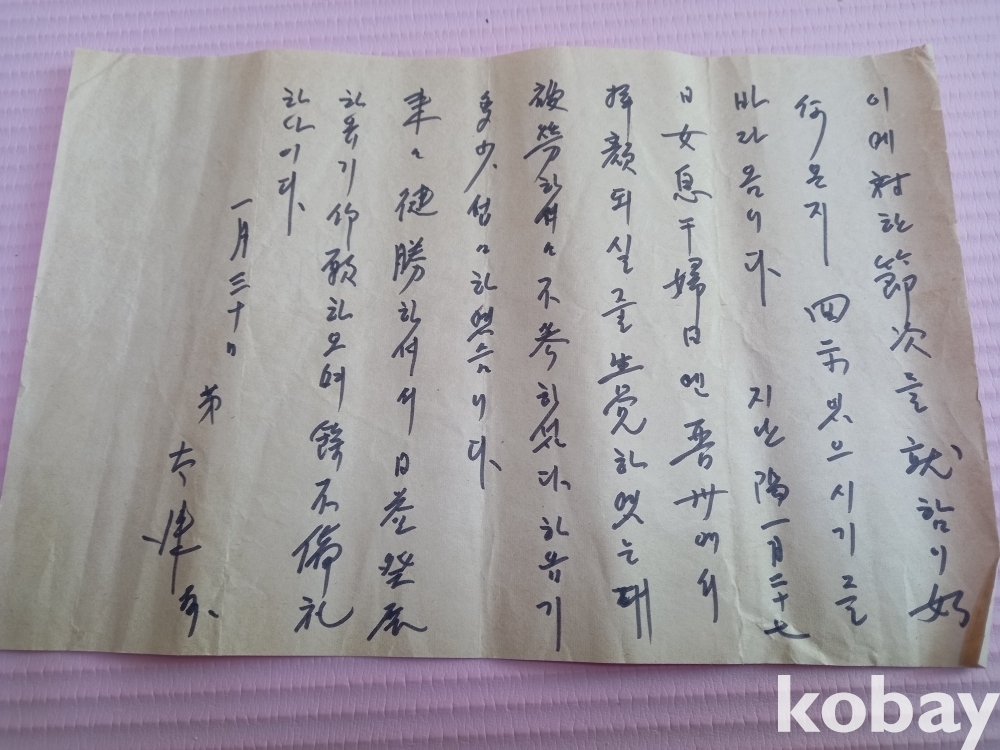 이에 對한 節次를 就함이 如
何온지 回示 있으시기를
바라옵니다 지난 陽一月二十七
日 女息 于婦日엔 晋州에서
拜顔되실줄 生覺하였는대
被勞하셔서 不參하셨다 하옵기
多少 섭섭하였습니다
來來 健勝하셔서 日益 發展
하옵기 仰願하오며 餘不備礼
하나이다
一月三十日
弟
kobay